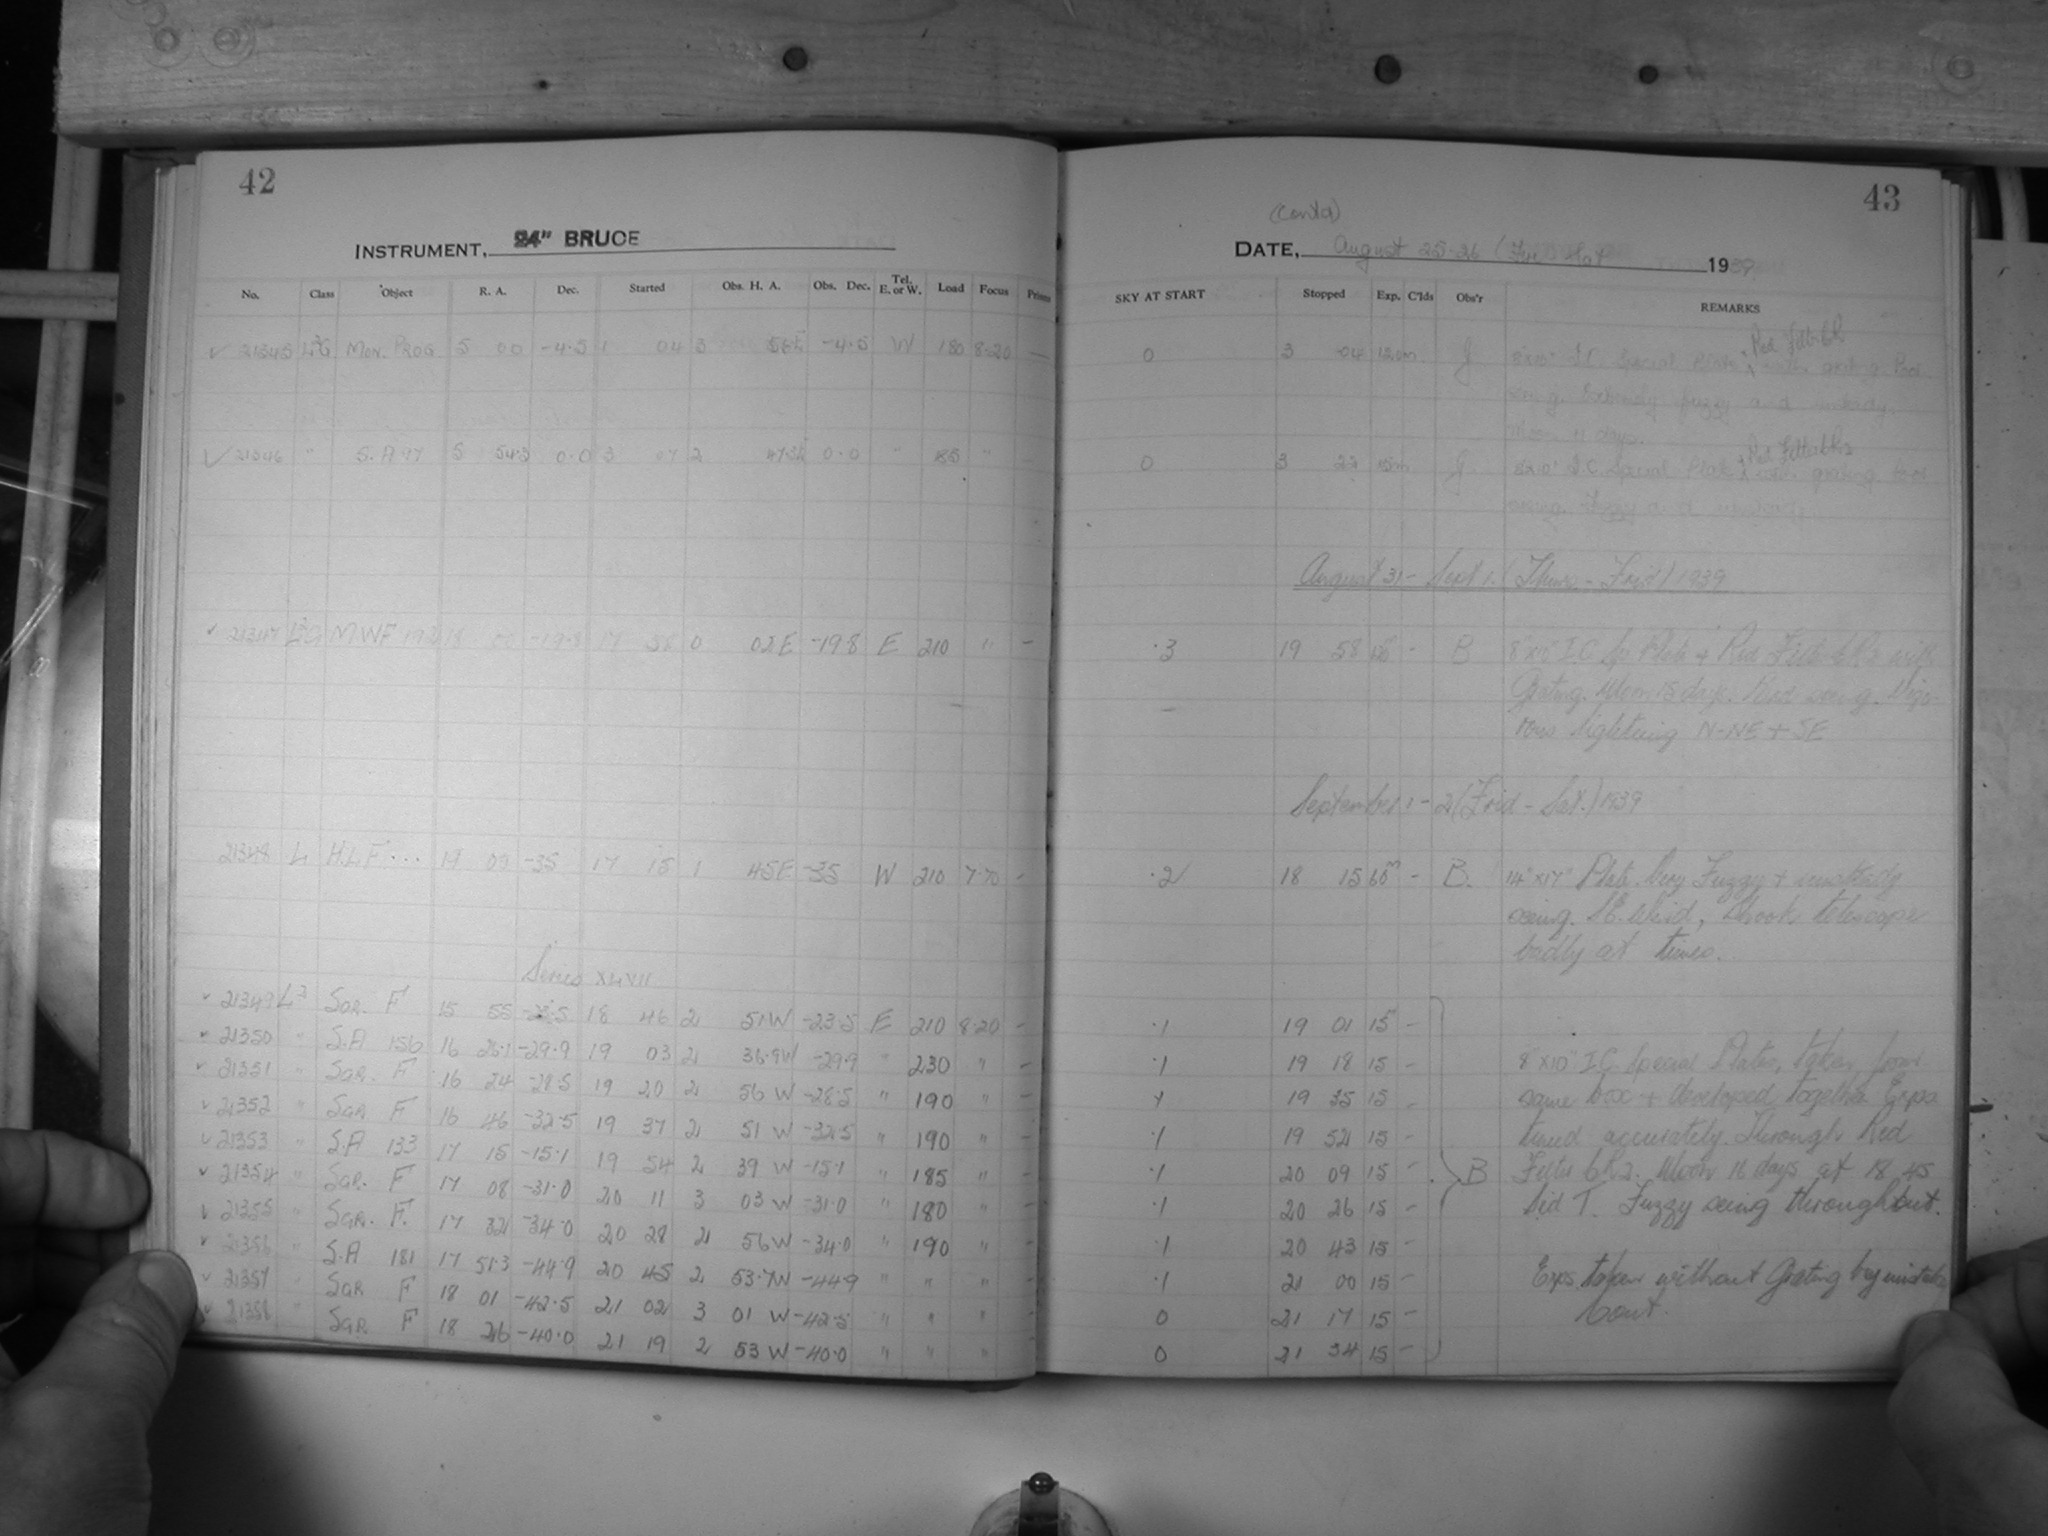 42
INSTRUMENT, 24" BRUCE
No. Class Object R. A. Dec. Started Obs. H. A. Obs. Dec. Tel. E. or W. Load Focus Prism
21345 Mon. Prog 5 00 -4.5 1 04 3 -4.5 W 180 8.20 —
21346 " S.A 97 5 54.5 0.0 3 07 2 0.0 " 85 "
21347 MWF 18 -19.8 17 58 0 02E -19.8 E 210 " -
21348 L H.L.F... 19 00 -35 17 15 1 45E -35 W 210 7.70 -
Series XLVII
21349 L3 Sgr. F 15 55 -23.5 18 46 2 51W -23.5 E 210 8.20 -
21350 " S.A 156 16 26.1 -29.9 19 03 2 36.9W -29.9 " 230 " -
21351 " Sgr. F 16 24 -28.5 19 20 2 56 W -28.5 " 190 " -
21352 " Sgr F 16 46 -32.5 19 37 2 51 W -32.5 " 190 " -
21353 " S.A 133 17 15 -15.1 19 54 2 39 W -15.1 " 185 " -
21354 " Sgr. F 17 08 -31.0 20 11 3 03 W -31.0 " 180 " -
21355 " Sgr. F. 17 32 -34.0 20 28 2 56W -34.0 " 190 " -
21356 " S.A 181 17 51.3 -44.9 20 45 2 53.7W -44.9 " " " -
21357 " Sgr F 18 01 -42.5 21 02 3 01 W -42.5 " " " -
21358 " Sgr F 18 26 -40.0 21 19 2 53 W -40.0 " " " -
43
(Contd)
DATE, August 25-26 1939
SKY AT START Stopped Exp. C'lds Obs'r REMARKS
Red Filter
0 3 04 120m J. 8"x10" I.C. Special Plate with grating Poor
seeing. Extremely fuzzy and unsteady.
Moon 11 days.
0 3 22 15m J. 8x10" I.C. Special Plate with grating Poor
seeing. Fuzzy and unsteady
August 31 - Sept 1. (Thurs - Frid) 1939
.3 19 58 120 - B 8"x10" I.C. Sp. Plate + Red Filter with
Grating. Moon 15 days. Bad seeing. Vigo-
rous lightning N-NE + SE
September 1 - 2 (Frid - Sat.) 1939
.2 18 15 60m - B. 14"x17" Plate. Very Fuzzy + unsteady
seeing. SE. Wind, shook telescope
badly at times.
.1 19 01 15m -
.1 19 18 15 - 8"x10" I.C. Special Plates, taken from
.1 19 35 15 - same box + developed together Exps
.1 19 52 15 - timed accurately. Through Red
.1 20 09 15 - B Filter 6R2. Moon 16 days at 18 45
.1 20 26 15 - Sid T. Fuzzy seeing throughout.
.1 20 43 15 -
.1 21 00 15 - Exps. taken without Grating by mistake
0 21 17 15 -
0 21 34 15 -